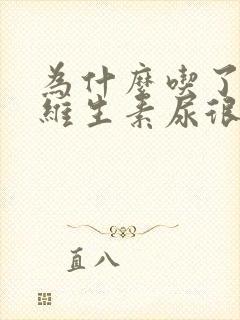 為什麼喫了
維生素尿很
直八